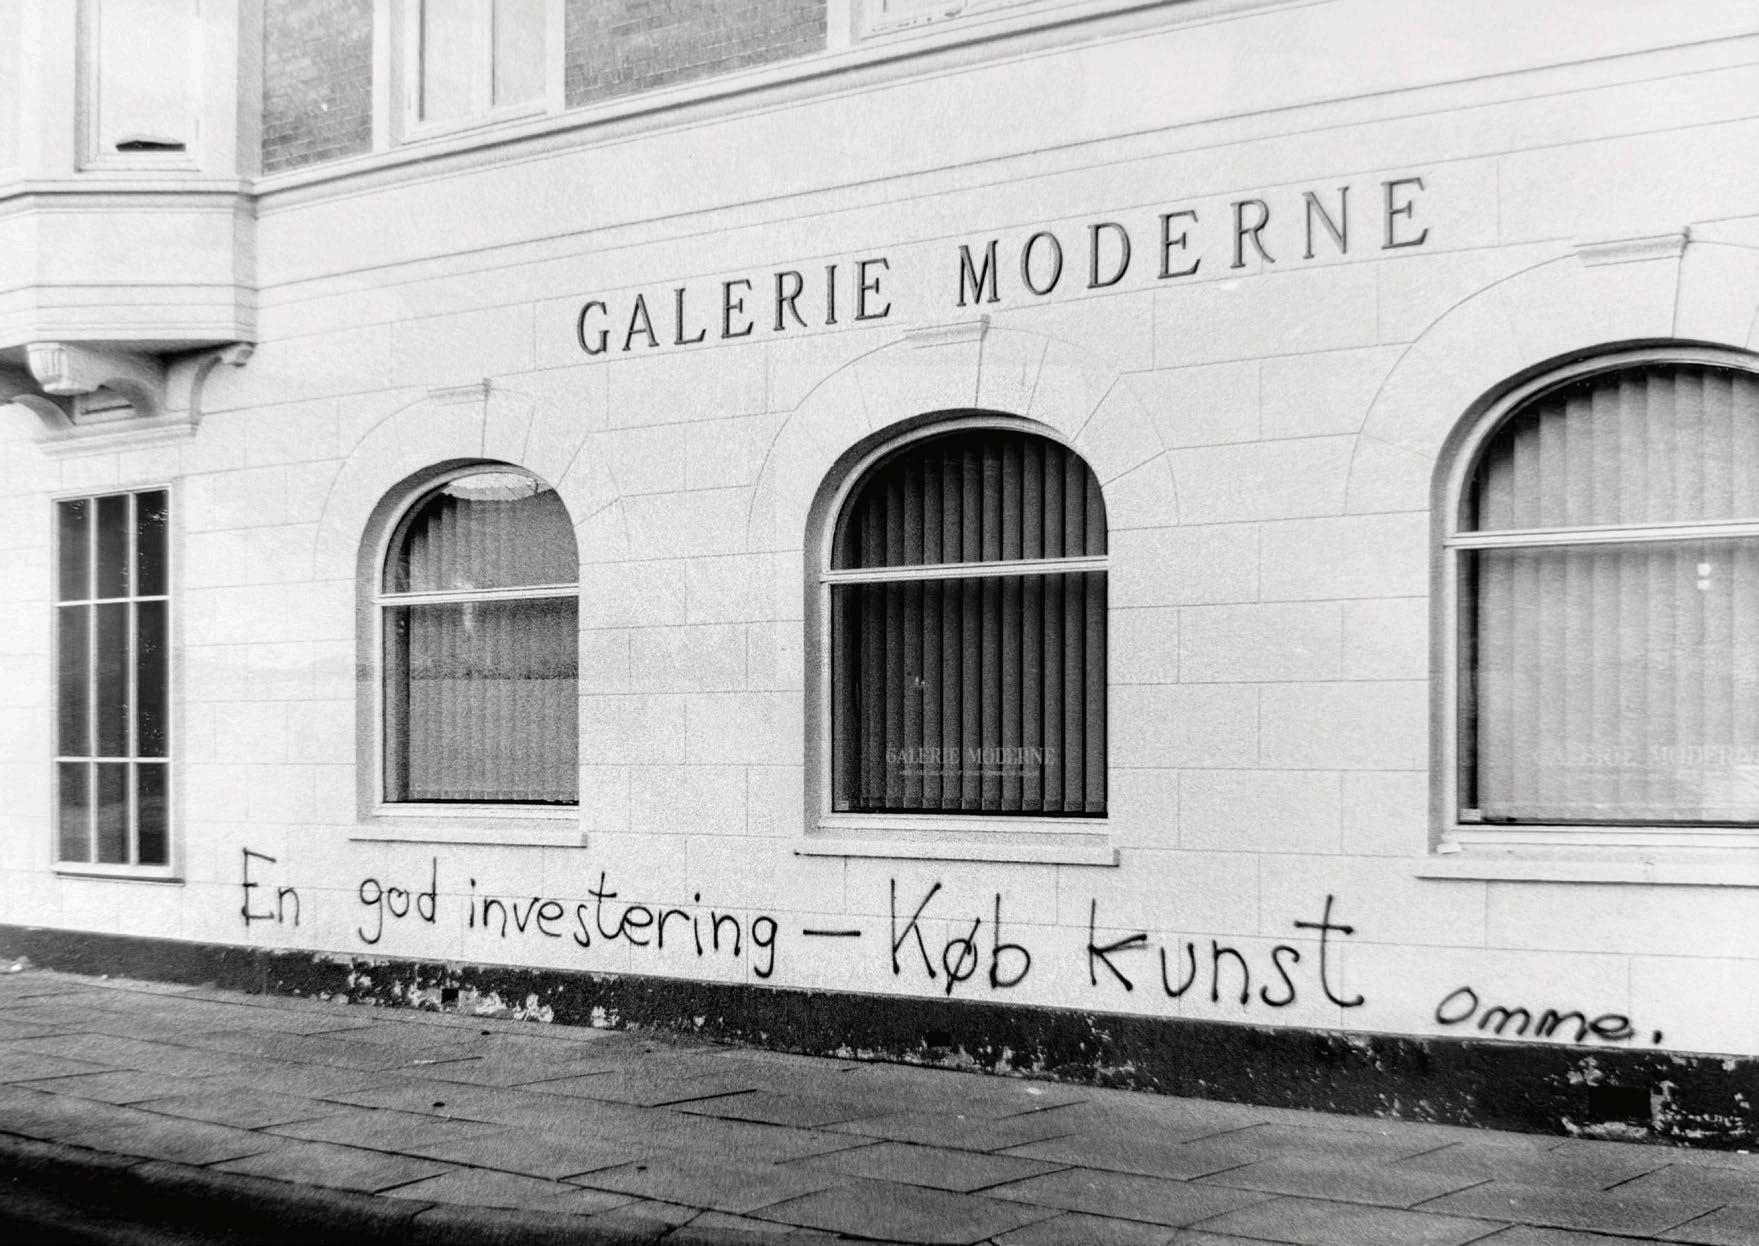 GALERIE MODERNE
GALERIE MODERNE
GALERIE MODERNE
En god investering – Køb kunst omme.